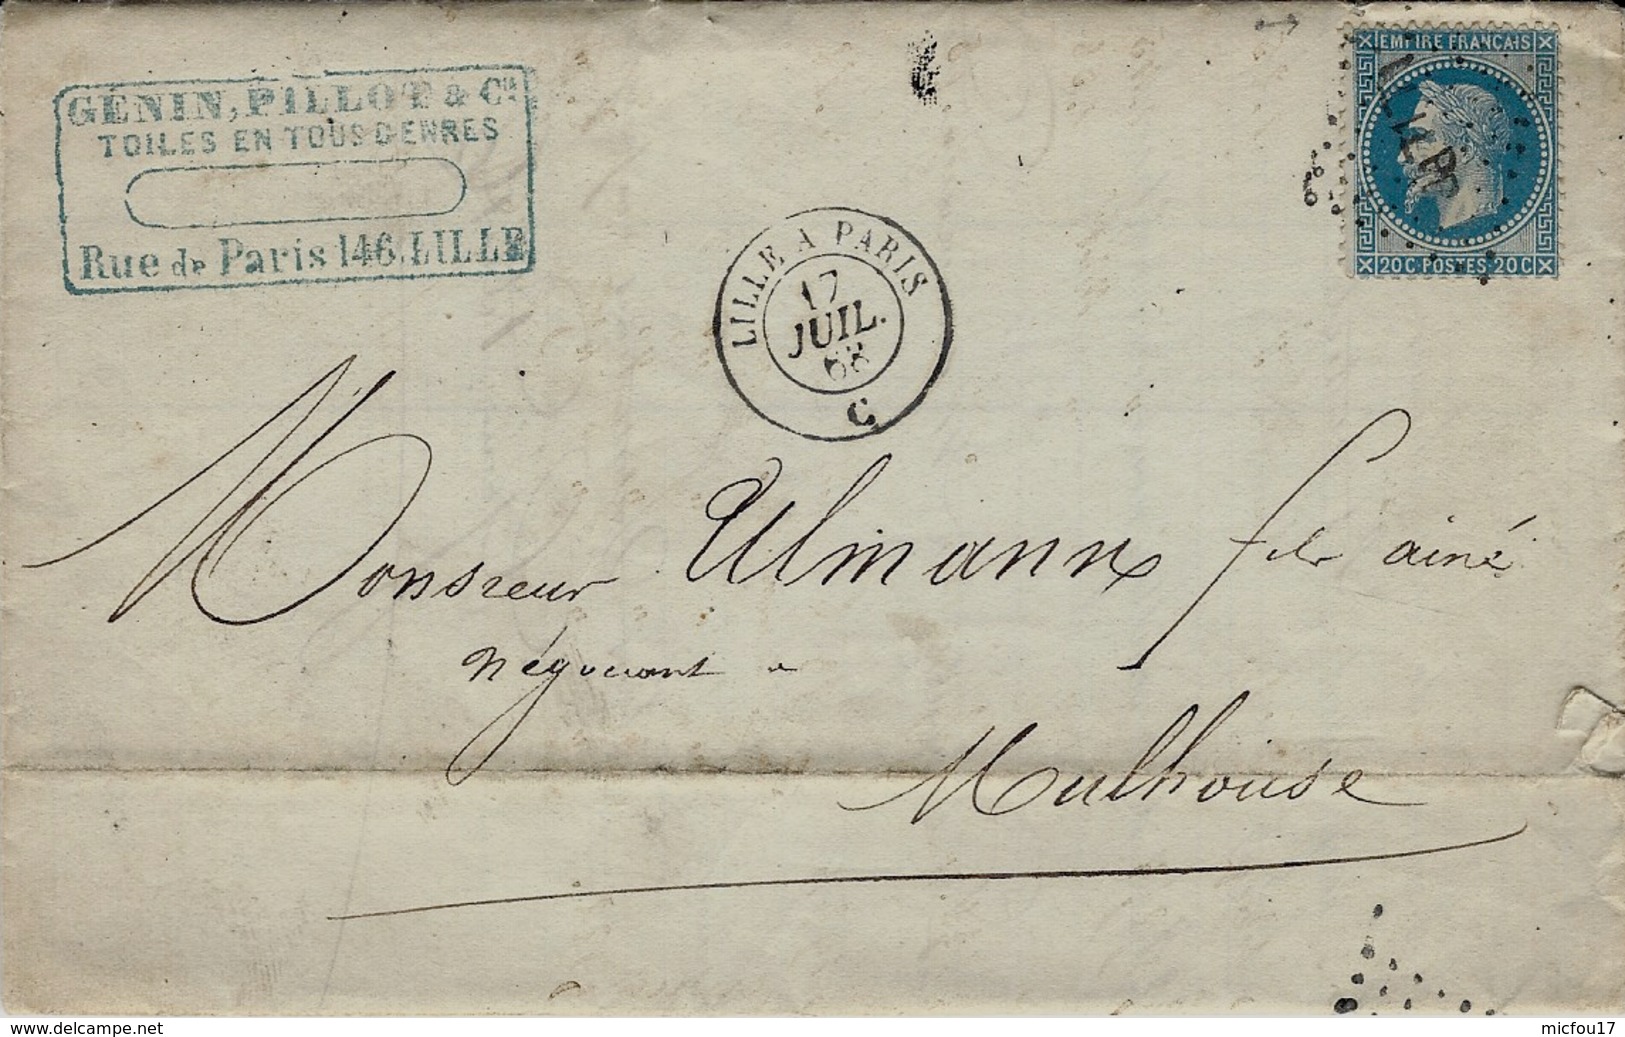 GENIN, PILLOT & Cie
TOILES EN TOUS GENRES
Rue de Paris 146. LILLE
LILLE A PARIS
17
JUIL.
68
C
EMPIRE FRANÇAIS
20 C POSTES 20 C
Monsieur Ulmann fils ainé
négociant a
Mulhouse
www.delcampe.net
micfou17